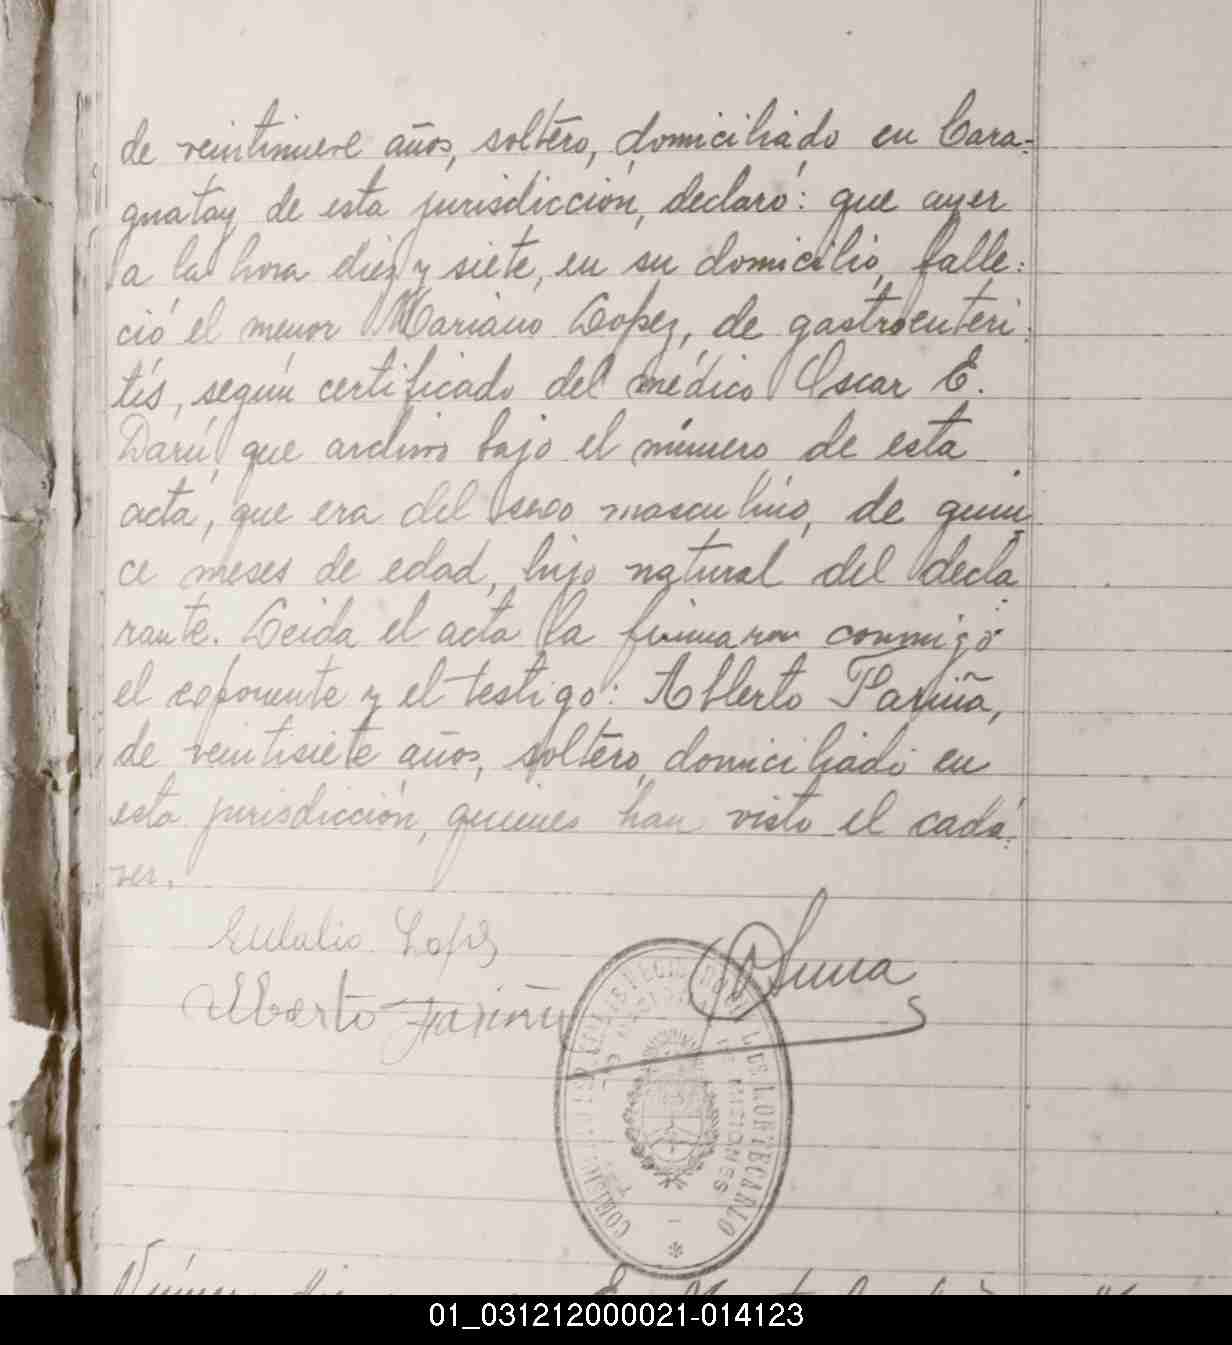 de veintinueve años, soltero, domiciliado en Cara-
guatay de esta jurisdicción, declaró: que ayer
a la hora diez y siete, en su domicilio, falle:
ció el menor Mariano Lopez, de gastroenteri:
tis, según certificado del médico Oscar E.
Darú, que archivo bajo el número de esta
acta, que era del sexo masculino, de quin
ce meses de edad, hijo natural del decla
rante. Leida el acta la firmaron conmigo
el exponente y el testigo: Alberto Fariña,
de veintisiete años, soltero, domiciliado en
esta jurisdicción, quienes han visto el cadá:
ver.
Eulalio Lopez
Alberto Fariña
MONTECARLO
MISIONES
Número
01_031212000021-014123